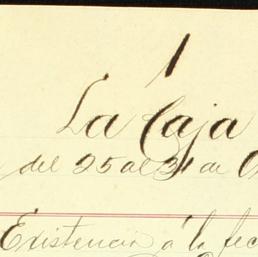 1
La Caja
del 25 al 31 de
Existencia á la fec